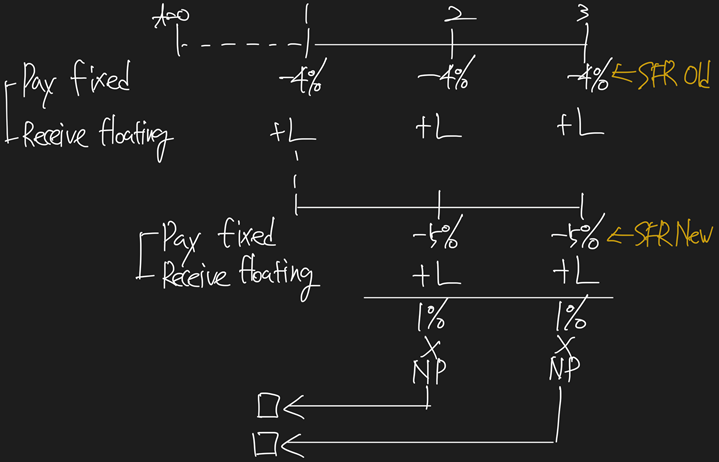 t=0 1 2 3
Pay fixed -4% -4% -4% ← SFR Old
Receive floating +L +L +L
Pay fixed -5% -5% ← SFR New
Receive floating +L +L
1% 1%
X X
NP NP